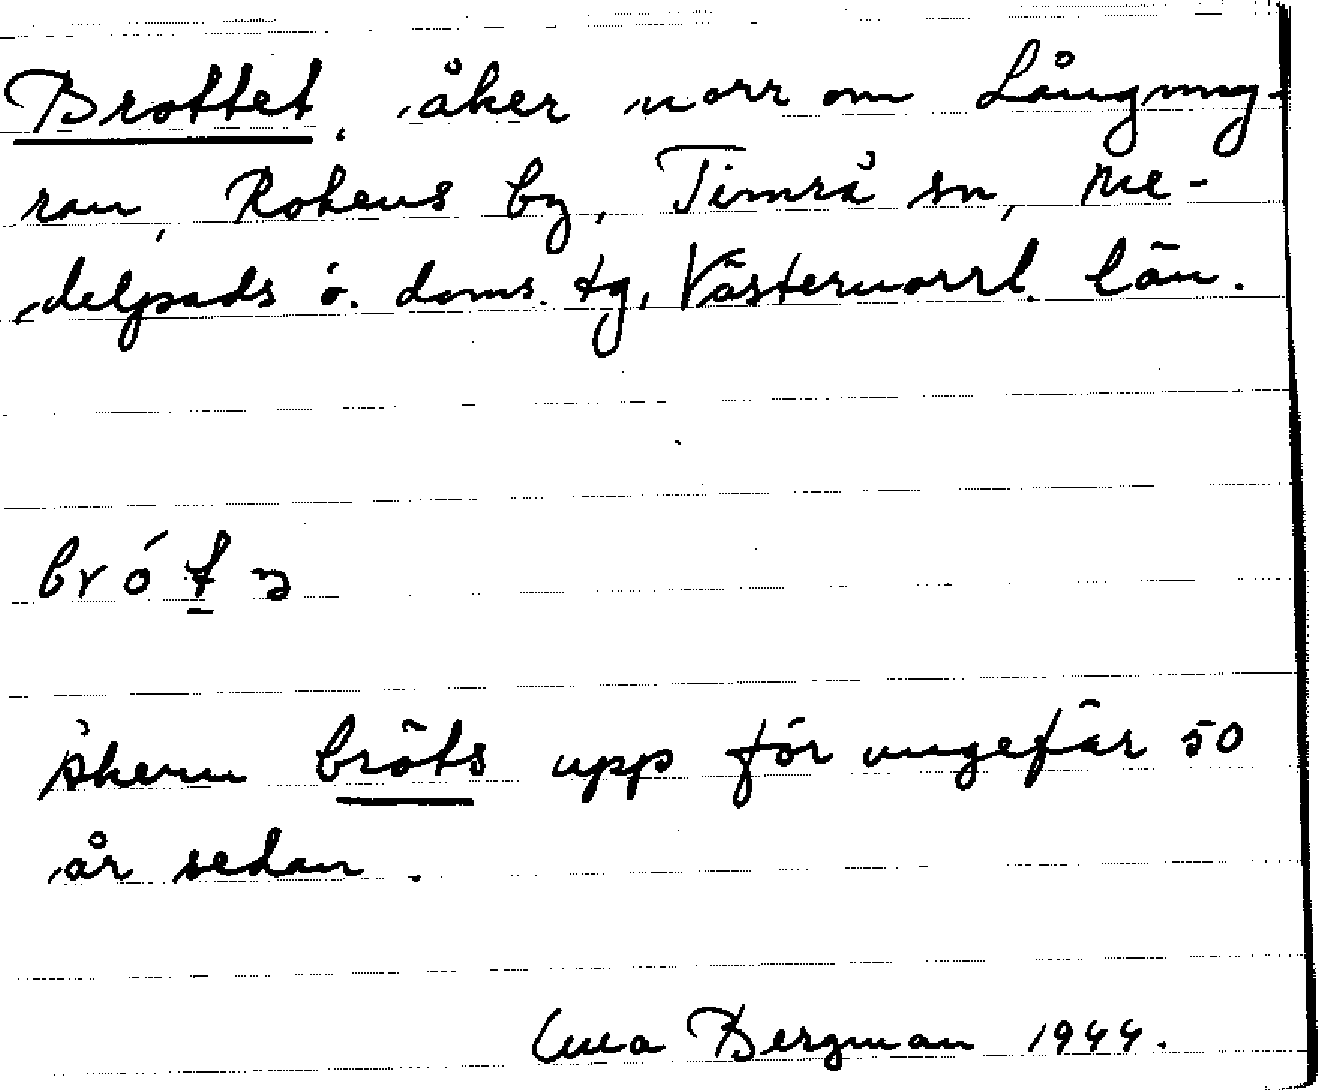 Brottet, åker norr om Långmyr-
ran, Rokens by, Timrå sn, Me-
delpads ö. doms. tg, Västernorrl. län.
bró t ə
Åkern bröts upp för ungefär 50
år sedan.
Bergman 1944.